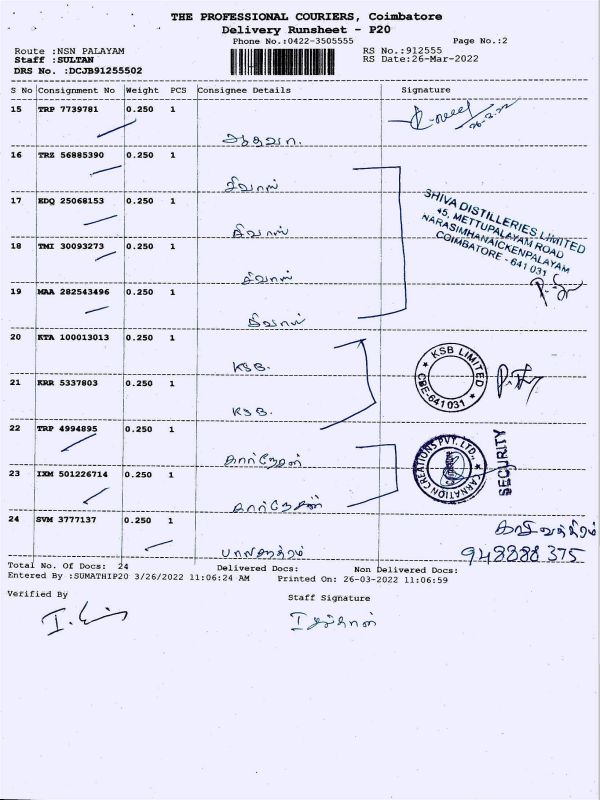 THE PROFESSIONAL COURIERS, Coimbatore
Delivery Runsheet - P20
Phone No.:0422-3505555 Page No.:2
Route :NSN PALAYAM RS No.:912555
Staff :SULTAN RS Date:26-Mar-2022
DRS No. :DCJB91255502
S No Consignment No Weight PCS Consignee Details Signature
15 TRP 7739781 0.250 1
16 TRZ 56885390 0.250 1
சிவாஸ்
17 EDQ 25068153 0.250 1
சிவாஸ்
SHIVA DISTILLERIES LIMITED
45, METTUPALAYAM ROAD
NARASIMHANAICKENPALAYAM
COIMBATORE - 641 031
18 TMI 30093273 0.250 1
சிவாஸ்
19 MAA 282543496 0.250 1
சிவாஸ்
20 KTA 100013013 0.250 1
KSB.
KSB LIMITED
CBE-641031
21 KRR 5337803 0.250 1
KSB.
22 TRP 4994895 0.250 1
கார்நேசன்
CARNATION CREATIONS PVT. LTD.,
SECURITY
23 IXM 501226714 0.250 1
கார்நேசன்
24 SVM 3777137 0.250 1
948888 375
Total No. Of Docs: 24 Delivered Docs: Non Delivered Docs:
Entered By :SUMATHIP20 3/26/2022 11:06:24 AM Printed On: 26-03-2022 11:06:59
Verified By Staff Signature